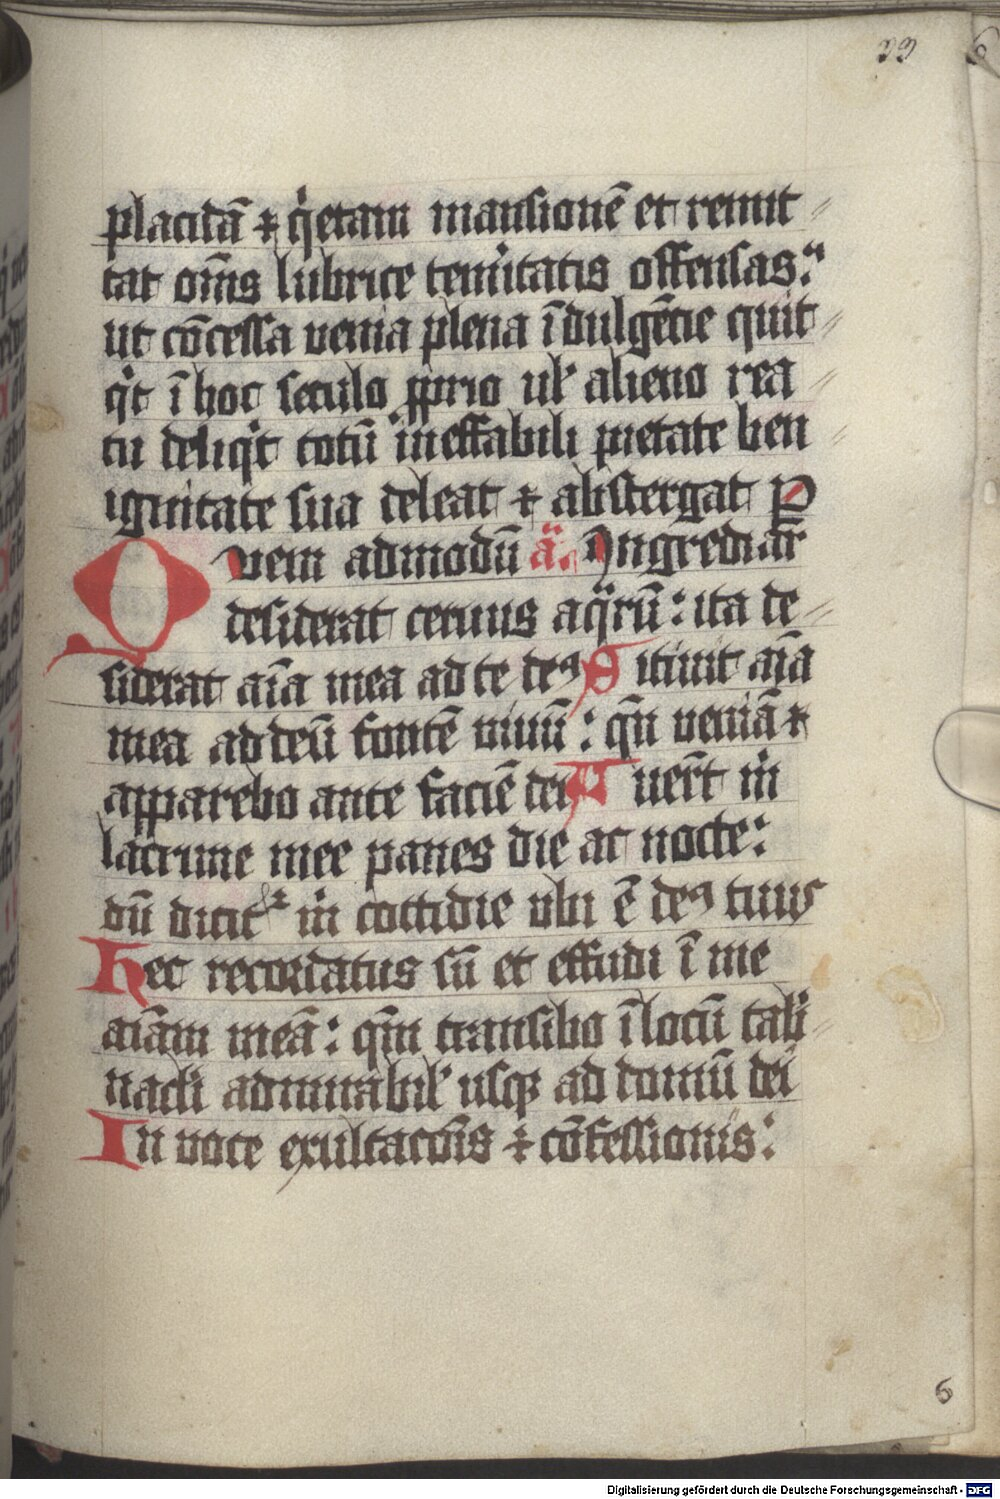 33
placidā ⁊ q̇etam mansionē et remit
tat om̄s lubrice temitatis offensas.
ut cōcessa venia plena īdulgēcie quit
q̇t ī hoc seculo ꝓprio ul' alieno rea
tu deliq̇t totū ineffabili pietate ben
ignitate sua deleat ⁊ abstergat P
Quem admodū a. Ingrediar
desiderat ceruus aq̄rū: ita de
siderat aīa mea ad te deꝰ Sitiuit aīa
mea ad deū fontē viuū: qn̄ veniā ⁊
apparebo ante faciē dei Fuer̄t m̄
lacrime mee panes die ac nocte:
dū dicit m̄ cottidie ubi ē deꝰ tuus
Hec recordatus sū et effudi ī me
aīam meā: qm̄ transibo ī locū tab
nacli admirabil' usqꝫ ad domū dei
In voce exultacōis ⁊ cōfessionis:
6
Digitalisierung gefördert durch die Deutsche Forschungsgemeinschaft - DFG